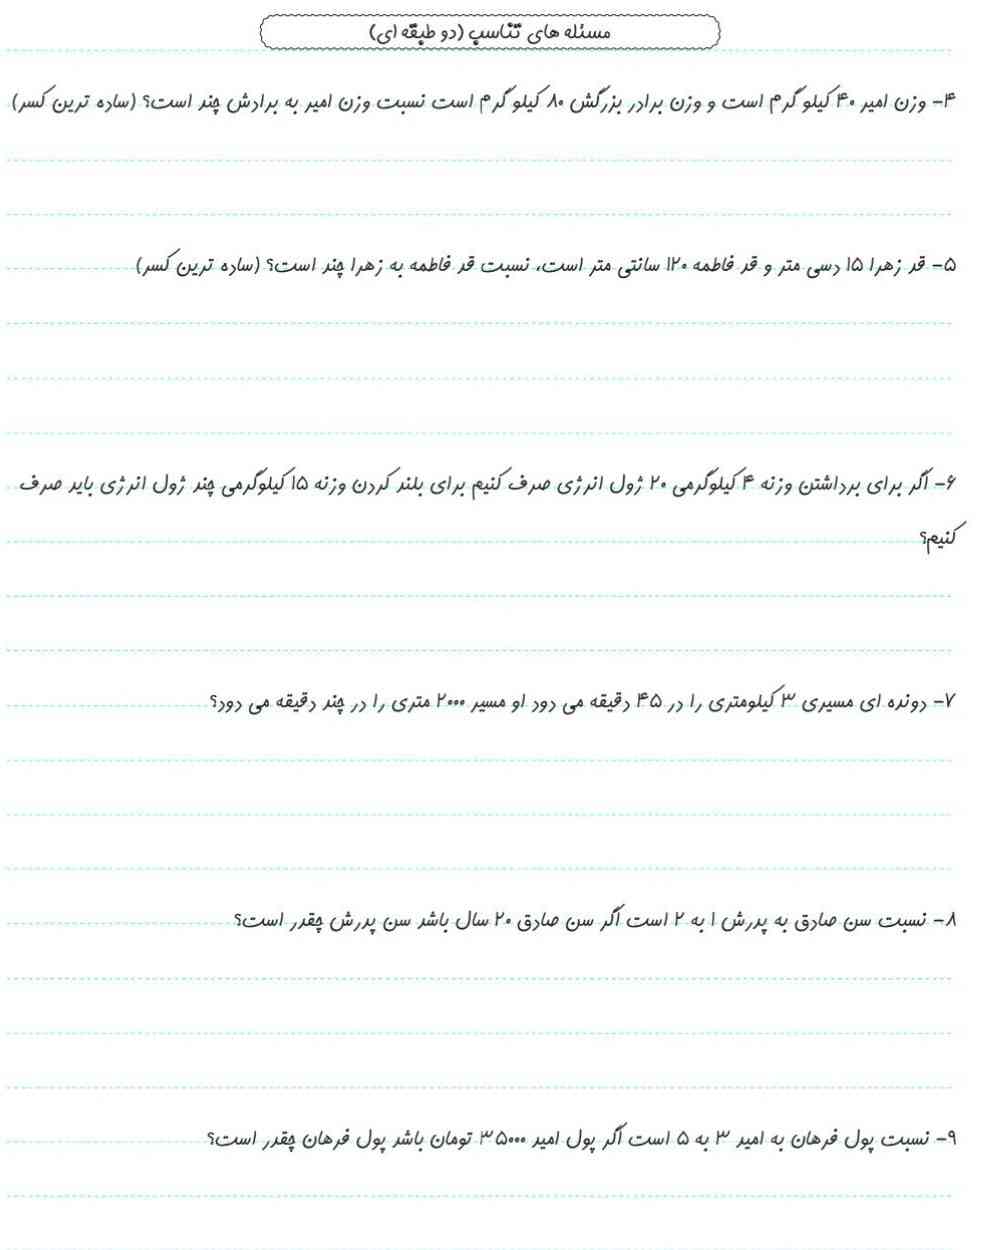 مسئله های تناسب (دو طبقه ای)
۴- وزن امیر ۴۰ کیلو گرم است و وزن برادر بزرگش ۸۰ کیلو گرم است نسبت وزن امیر به برادرش چند است؟ (ساده ترین کسر)
۵- قد زهرا ۱۵ دسی متر و قد فاطمه ۱۲۰ سانتی متر است، نسبت قد فاطمه به زهرا چند است؟ (ساده ترین کسر)
۶- اگر برای برداشتن وزنه ۴ کیلوگرمی ۲۰ ژول انرژی صرف کنیم برای بلند کردن وزنه ۱۵ کیلوگرمی چند ژول انرژی باید صرف
کنیم؟
۷- دونده ای مسیری ۳ کیلومتری را در ۴۵ دقیقه می دود او مسیر ۲۰۰۰ متری را در چند دقیقه می دود؟
۸- نسبت سن صادق به پدرش ۱ به ۲ است اگر سن صادق ۲۰ سال باشد سن پدرش چقدر است؟
۹- نسبت پول فرهان به امیر ۳ به ۵ است اگر پول امیر ۳۵۰۰۰ تومان باشد پول فرهان چقدر است؟